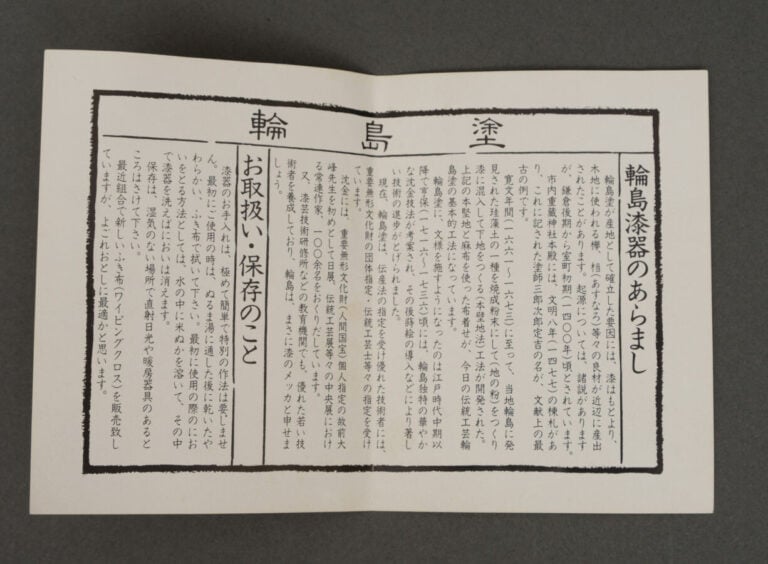 輪島塗
輪島漆器のあらまし
輪島塗が産地として確立した要因には、漆はもとより、
木地に使われる欅、档(あすなろ)等々の良材が近辺に産出
されたことがあります。起源については、諸説があります
が、鎌倉後期から室町初期(一四〇〇年)頃とされています。
市内重蔵神社本殿には、文明八年(一四七七)の棟札があ
り、これに記された塗師三郎次郎定吉の名が、文献上の最
古の例です。
寛文年間(一六六一〜一六七三)に至って、当地輪島に発
見された珪藻土の一種を焼成粉末にして(地の粉)をつくり
漆に混入して下地をつくる(本堅地法)工法が開発された。
上記の本堅地と麻布を使った布着せが、今日の伝統工芸輪
島塗の基本的工法になっています。
輪島塗に、文様を施すようになったのは江戸時代中期以
降で享保(一七一六〜一七三六)頃には、輪島独特の華やか
な沈金技法が考案され、その後蒔絵の導入などにより著し
い技術の進歩がとげられました。
現在、輪島塗は、伝産法の指定を受け優れた技術者には、
重要無形文化財の団体指定・伝統工芸士等々の指定を受け
ています。
沈金には、重要無形文化財(人間国宝)個人指定の故前大
峰先生を初めとして日展、伝統工芸展等々の中央展におけ
る常連作家、一〇〇余名をおくりだしています。
又、漆芸技術研修所などの教育機関でも、優れた若い技
術者を養成しており、輪島は、まさに漆のメッカと申せま
しょう。
お取扱い・保存のこと
漆器のお手入れは、極めて簡単で特別の作法は要しませ
ん。最初にご使用の時は、ぬるま湯に通した後に乾いたや
わらかい、ふき布で拭いて下さい。最初に使用の際のにお
いをとる方法としては、水の中に米ぬかを溶いて、その中
で漆器を洗えばにおいは消えます。
保存は、湿気のない場所で直射日光や暖房器具のあると
ころはさけて下さい。
最近組合で新しいふき布(ワイピングクロス)を販売致し
ていますが、よごれおとしに最適かと思います。